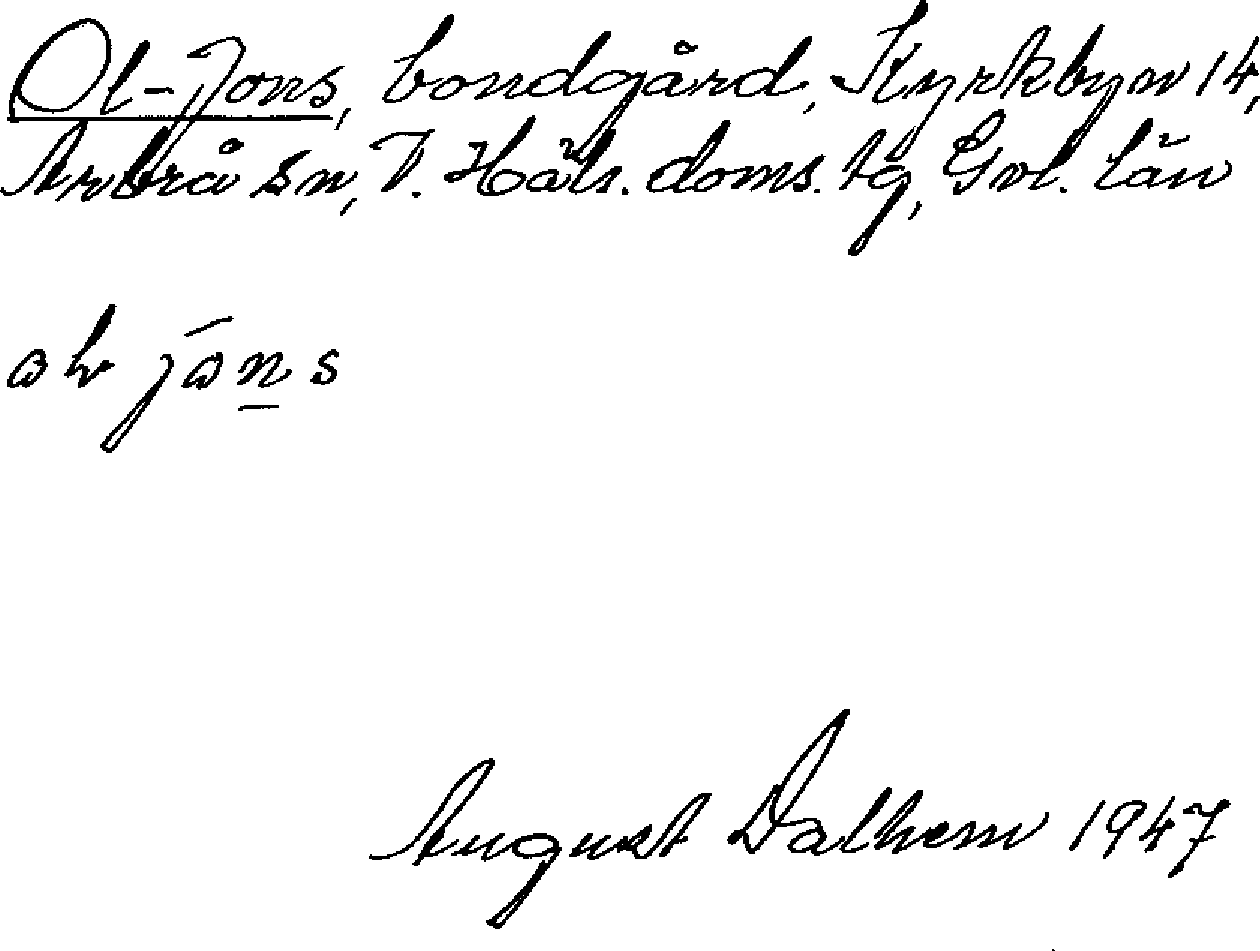 Ol-Jons, bondgård, Kyrkbyn 14,
Arbrå sn, V. Häls. doms. tg, Gvl. län
jōn̲s
August Dalhem 1947